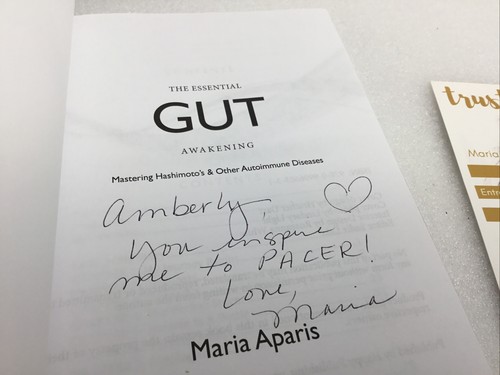 THE ESSENTIAL
GUT
AWAKENING
Mastering Hashimoto's & Other Autoimmune Diseases
Amberly,
You inspire
me to PACER!
Love,
Maria
Maria Aparis
trust
Maria
Entre